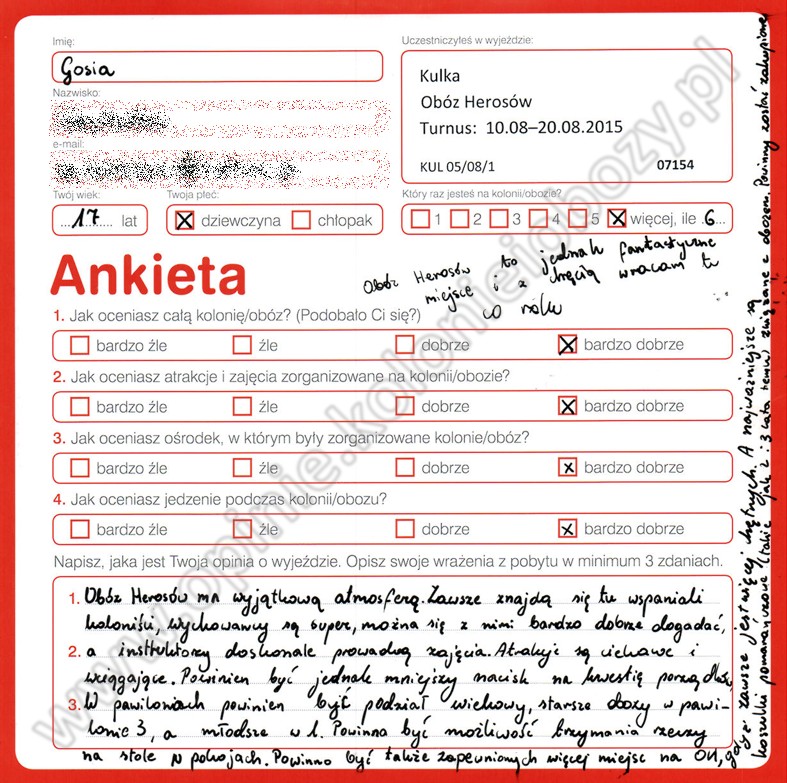 Imię:
Gosia
Nazwisko:
e-mail:
Twój wiek:
...17... lat
Twoja płeć:
dziewczyna chłopak
Uczestniczyłeś w wyjeździe:
Kulka
Obóz Herosów
Turnus: 10.08–20.08.2015
KUL 05/08/1 07154
Który raz jesteś na kolonii/obozie?
1 2 3 4 5 więcej, ile .6...
Ankieta
Obóz Herosów to jednak fantastyczne
miejsce i z chęcią wracam tu
co roku
1. Jak oceniasz całą kolonię/obóz? (Podobało Ci się?)
bardzo źle źle dobrze bardzo dobrze
2. Jak oceniasz atrakcje i zajęcia zorganizowane na kolonii/obozie?
bardzo źle źle dobrze bardzo dobrze
3. Jak oceniasz ośrodek, w którym były zorganizowane kolonie/obóz?
bardzo źle źle dobrze bardzo dobrze
4. Jak oceniasz jedzenie podczas kolonii/obozu?
bardzo źle źle dobrze bardzo dobrze
Napisz, jaka jest Twoja opinia o wyjeździe. Opisz swoje wrażenia z pobytu w minimum 3 zdaniach.
1. Obóz Herosów ma wyjątkową atmosferę. Zawsze znajdą się tu wspaniali
koloniści, wychowawcy są super, można się z nimi bardzo dobrze dogadać,
2. a instruktorzy doskonale prowadzą zajęcia. Atrakcje są ciekawe i
wciągające. Powinien być jednak mniejszy nacisk na kwestię porządków,
3. W pawilonach powinien być podział wiekowy, starsze obozy w pawi-
lonie 3, a młodsze w 1. Powinna być możliwość trzymania rzeczy
na stole w pokojach. Powinno być także zapewnionych więcej miejsc na OH,
gdyż zawsze jest więcej chętnych. A najważniejsze są
koszulki pomarańczowe (takie jak 2 i 3 lata temu) związane z obozem. Powinny zostać zakupione
www.opinie.kolonieiobozy.pl